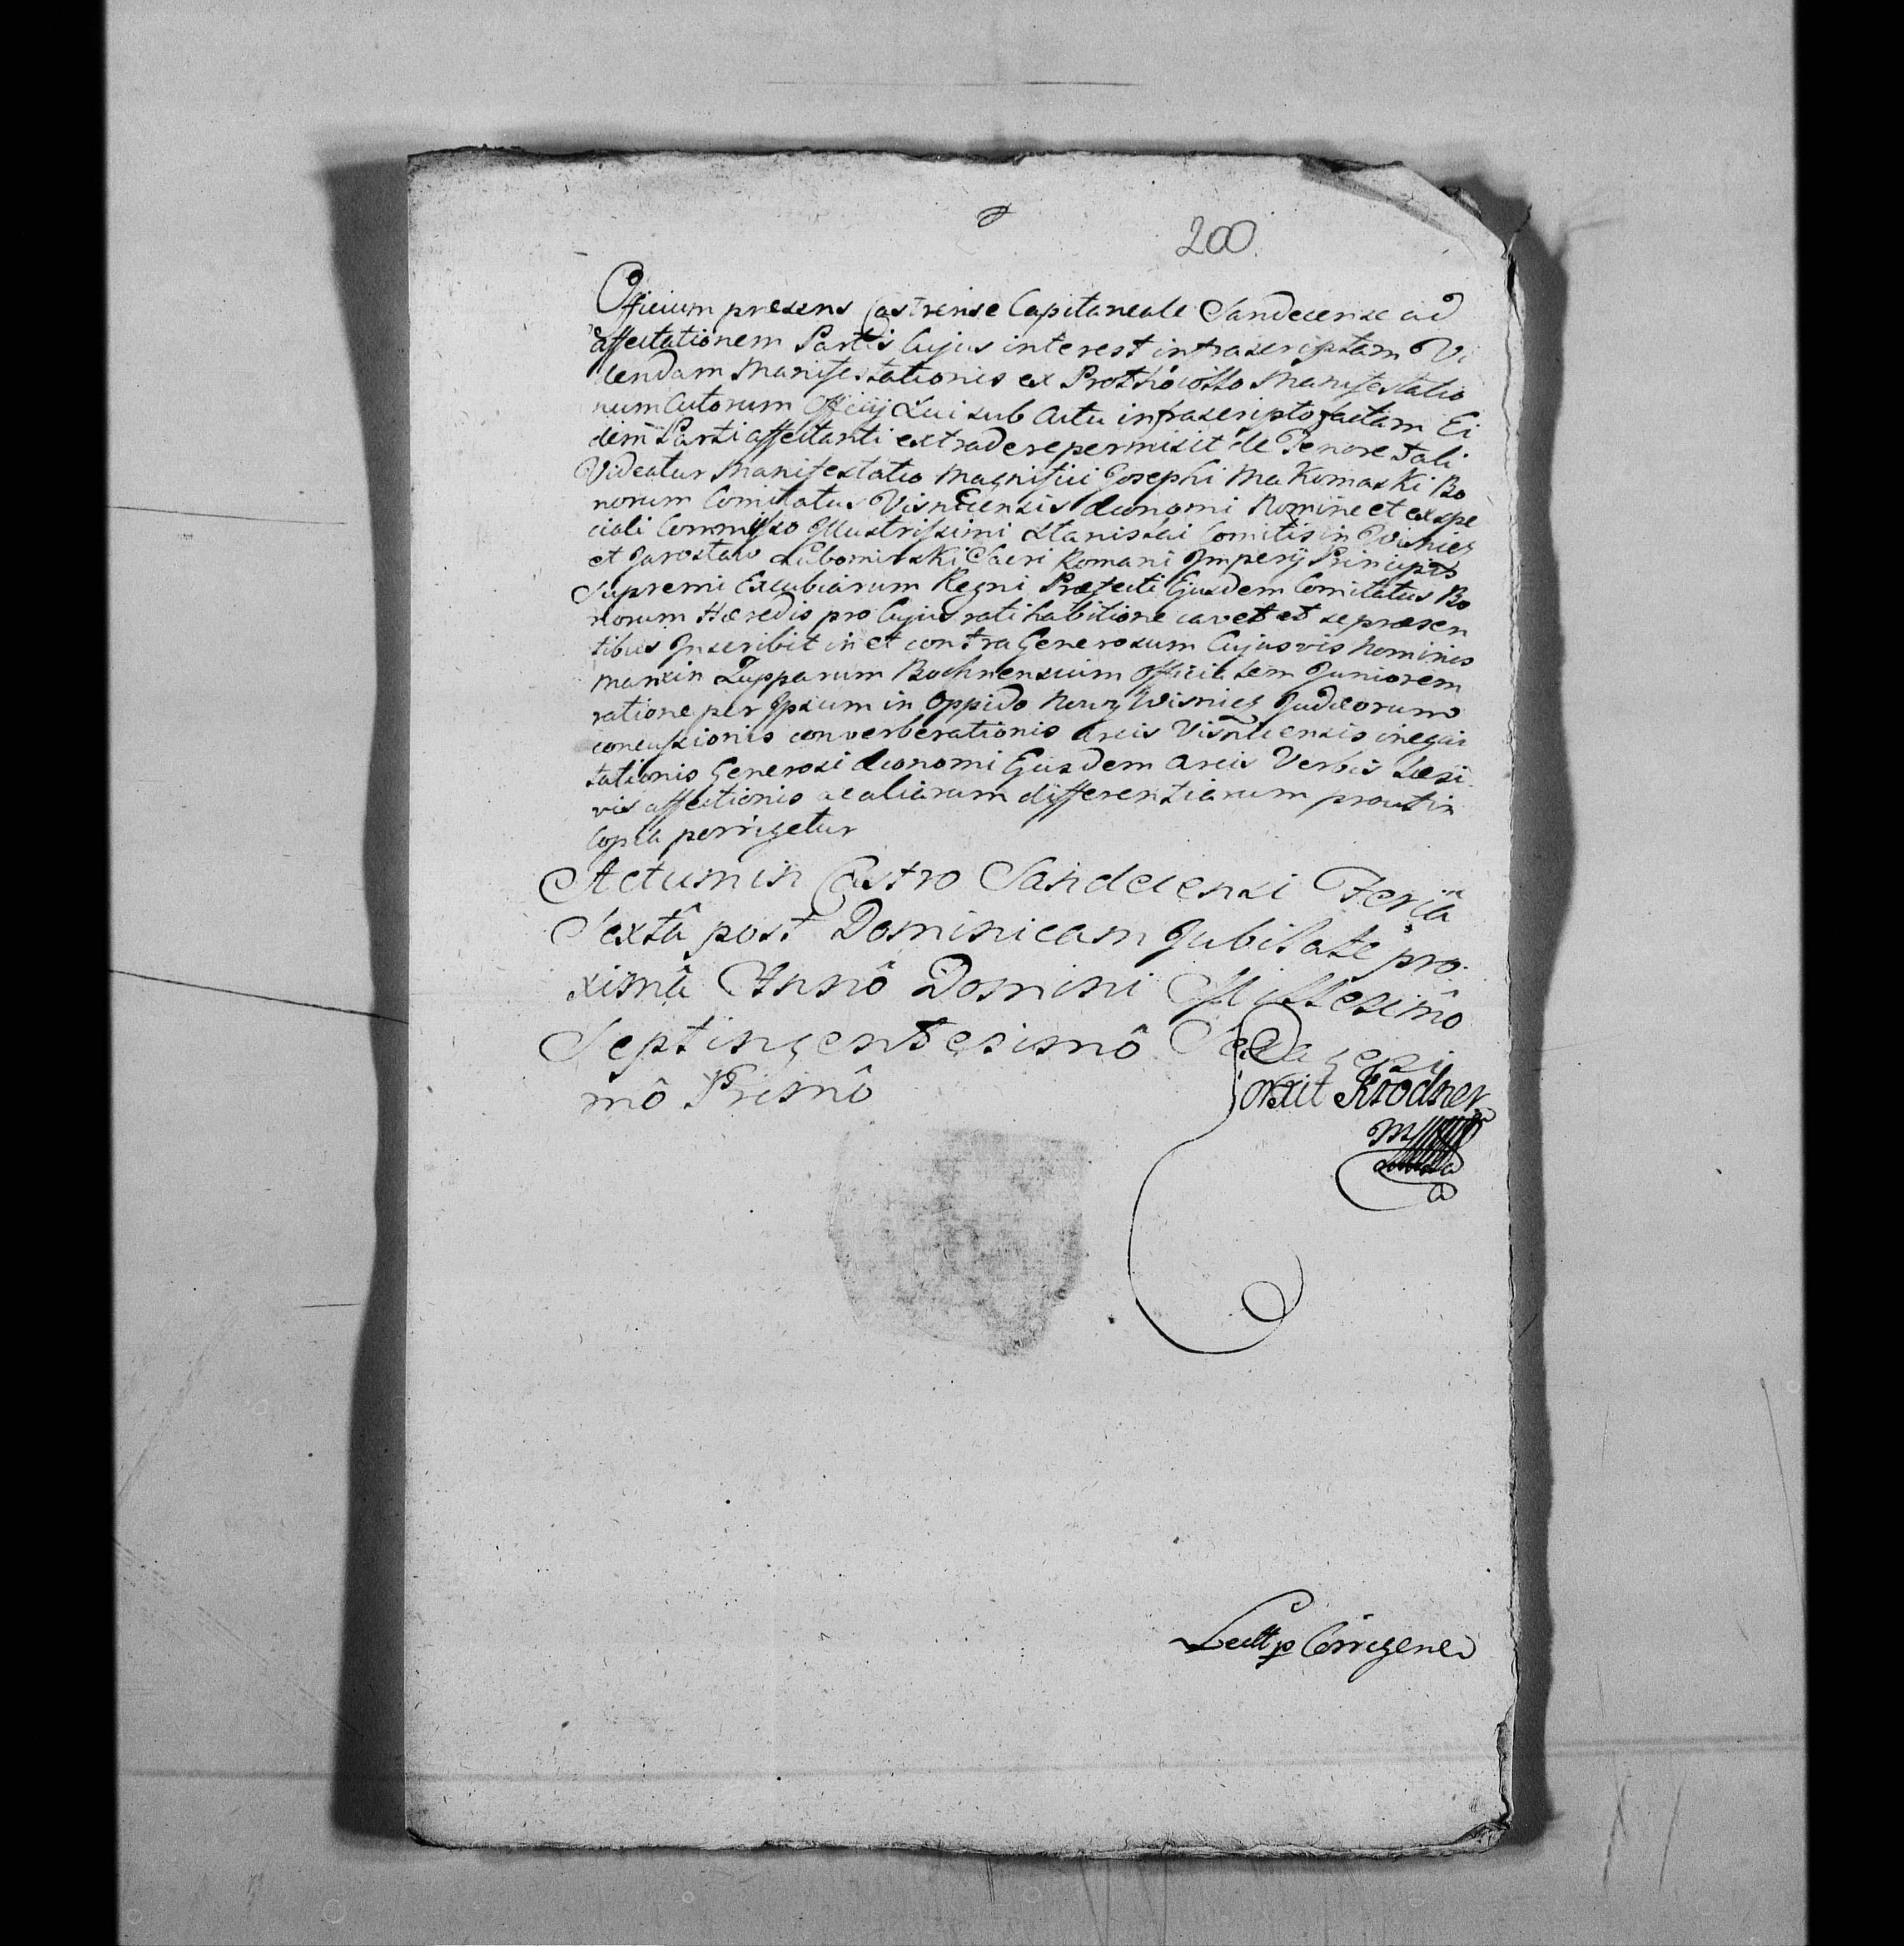 200.
Officium presens Castrense Capitaneale Sandecense ad
affectationem Partis Cujus interest infrascriptam Vi
dendam Manifestationis ex Prothocollo Manifestatio
num Actorum Officij Sui sub Actu infrascripto factam Ei
dem Parti affectanti extradere permisit de Tenore Tali
Videatur Manifestatio Magnifici Josephi Makomaski Bo
norum Comitatus Visnicensis Œconomi Nomine et ex spe
ciali Commisso Illustrissimi Stanislai Comitis in Wisnicz
et Jaroslaw Lubomirski Sacri Romani Imperij Principis
Supremi Excubiarum Regni Præfecti Ejusdem Comitatus Bo
norum Hæredis pro Cujus ratihabitione cavet et se præsen
tibus Inscribit in et contra Generosum Cujusvis Nominis
Marxin Zupparum Bochnensium Officialem Juniorem
ratione per Ipsum in Oppido Nowy Wisnicz Judæorum
concussionis converberationis Arcis Visnicensis inequi
tationis Generosi Œconomi Ejusdem Arcis Verbis Læsi
vis affectionis ac aliarum differentiarum prout in
Copia porrigetur
Actum in Castro Sandecensi Feriâ
Sextâ post Dominicam Jubilate pro
ximâ Annô Domini Millesimô
Septingentesimô Sexagesi
mô Primô
Correxit Krodner
mp
Lectp Corrigened